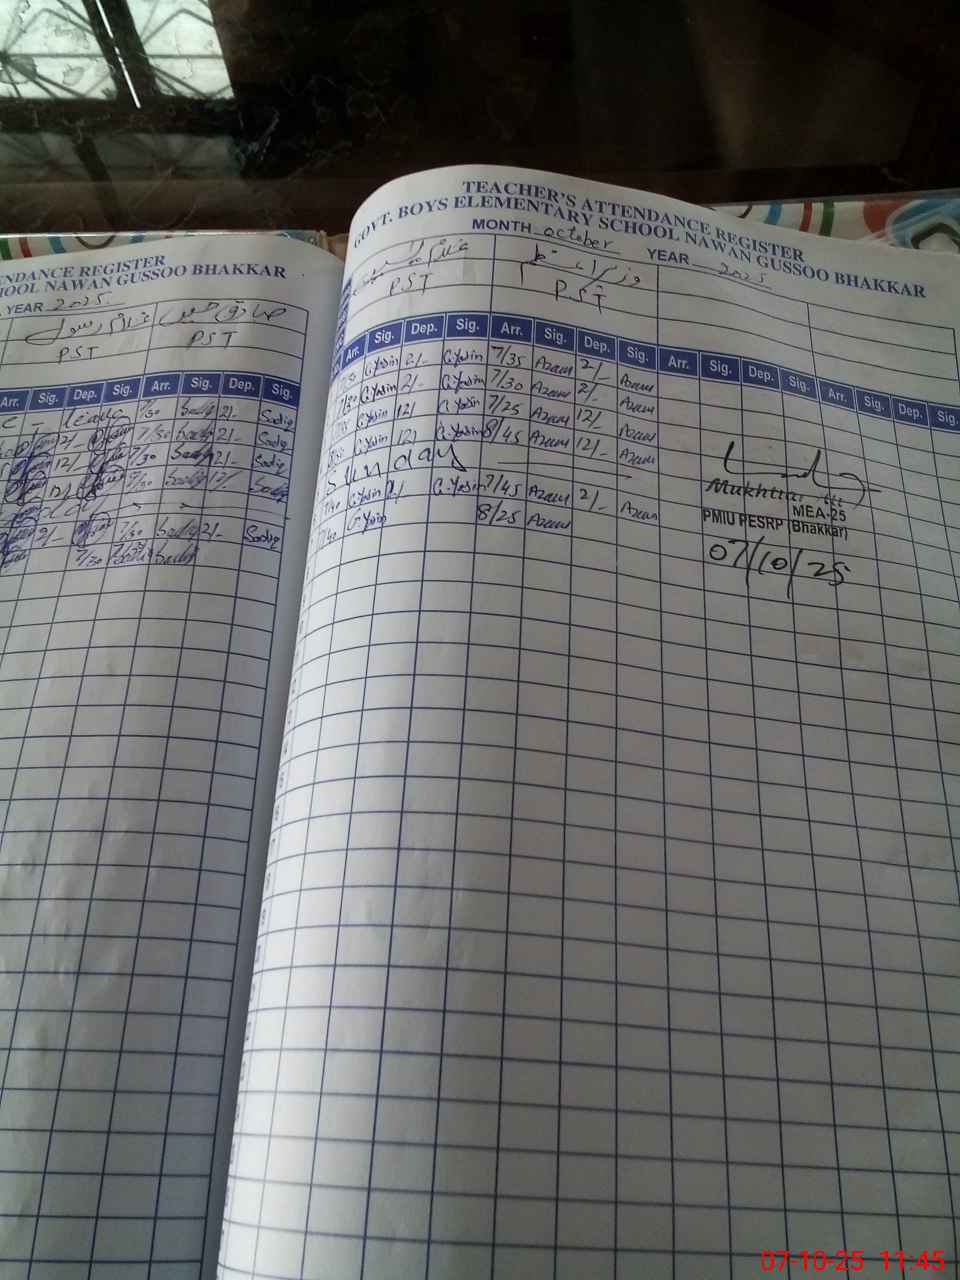 TEACHER'S ATTENDANCE REGISTER
GOVT. BOYS ELEMENTARY SCHOOL NAWAN GUSSOO BHAKKAR
MONTH october YEAR 2025
PST PST
Arr. Sig. Dep. Sig. Arr. Sig. Dep. Sig. Arr. Sig. Dep. Sig. Arr. Sig. Dep. Sig.
7/30 G.Yasin 2/- G.Yasin 7/35 Azam 2/- Azam
7/30 G.Yasin 2/- G.Yasin 7/30 Azam 2/- Azam
G.Yasin 12/ G.Yasin 7/25 Azam 12/- Azam
G.Yasin 12/ G.Yasin 8/45 Azam 12/- Azam
Sunday
7/30 G.Yasin 2/ G.Yasin 7/45 Azam 2/- Azam
7/40 G.Yasin 8/25 Azam
Mukhtiar
MEA-25
PMIU PESRP (Bhakkar)
07/10/25
ENDANCE REGISTER
OOL NAWAN GUSSOO BHAKKAR
YEAR 2025
غلام رسول صادق حسین
PST PST
Arr. Sig. Dep. Sig. Arr. Sig. Dep. Sig.
C - leave 7/30 Sadiq 2/- Sadiq
2/- 7/30 Sadiq 2/- Sadiq
12/- 7/30 Sadiq 2/- Sadiq
7/30 Sadiq 12/- Sadiq
2/- 7/30 Sadiq 2/- Sadiq
7/30 Sadiq
07-10-25 11:45